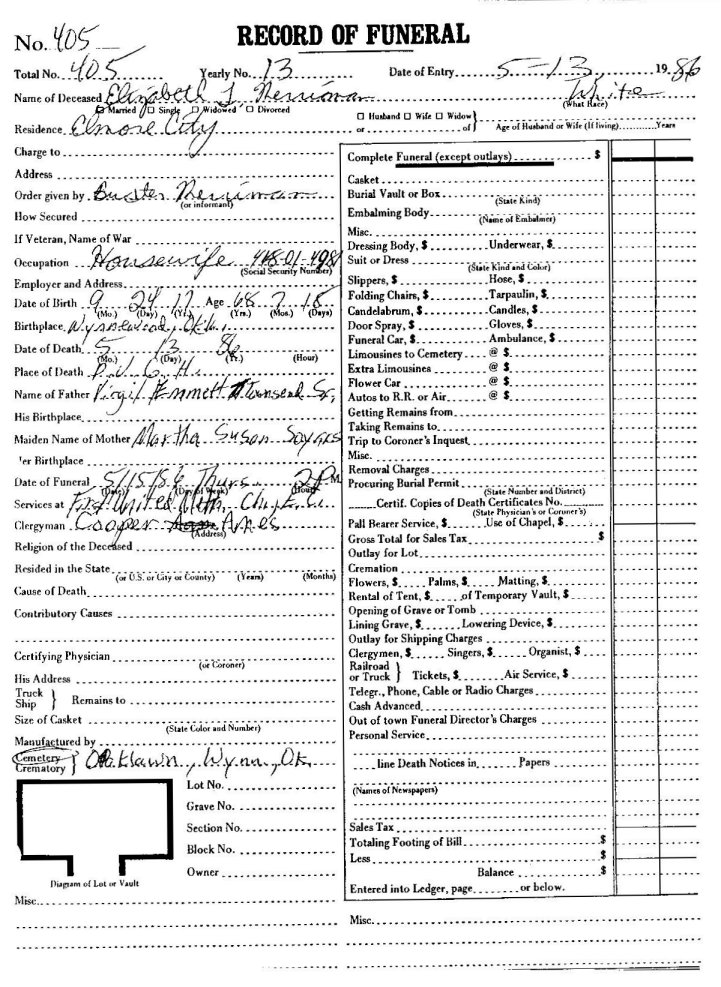 No. 405
RECORD OF FUNERAL
Total No. 405 Yearly No. 13 Date of Entry 5-13, 19 86
Name of Deceased Elizabeth Merriman White
Married Single Widowed Divorced (What Race)
Husband Wife Widow
or of Age of Husband or Wife (If living) Years
Residence Elmore City
Charge to
Address
Order given by Buster Merriman
(or informant)
How Secured
If Veteran, Name of War
Occupation Housewife
(Social Security Number)
Employer and Address
Date of Birth 9 24 17 Age 68 7 18
(Mo.) (Day) (Yr.) (Yrs.) (Mos.) (Days)
Birthplace Wynnewood, Okla.
Date of Death 5 13 86
(Mo.) (Day) (Yr.) (Hour)
Place of Death P. V. G. H.
Name of Father Virgil Emmett Townsend Sr.
His Birthplace
Maiden Name of Mother Martha Susan
'er Birthplace
Date of Funeral 5/15/86 Thurs 2 PM
(Date) (Day of Week) (Hour)
Services at First United Meth. Church
Clergyman Cooper Ames
(Address)
Religion of the Deceased
Resided in the State
(or U.S. or City or County) (Years) (Months)
Cause of Death
Contributory Causes
Certifying Physician
(or Coroner)
His Address
Truck
Ship Remains to
Size of Casket
(State Color and Number)
Manufactured by
Cemetery
Crematory Oaklawn, Wynn, Ok.
Lot No.
Grave No.
Section No.
Block No.
Owner
Diagram of Lot or Vault
Misc.
Complete Funeral (except outlays) $
Casket
Burial Vault or Box
(State Kind)
Embalming Body
(Name of Embalmer)
Misc.
Dressing Body, $ Underwear, $
Suit or Dress
(State Kind and Color)
Slippers, $ Hose, $
Folding Chairs, $ Tarpaulin, $
Candelabrum, $ Candles, $
Door Spray, $ Gloves, $
Funeral Car, $ Ambulance, $
Limousines to Cemetery @ $
Extra Limousines @ $
Flower Car @ $
Autos to R.R. or Air @ $
Getting Remains from
Taking Remains to
Trip to Coroner's Inquest
Misc.
Removal Charges
Procuring Burial Permit
(State Number and District)
Certif. Copies of Death Certificates No.
(State Physician's or Coroner's)
Pall Bearer Service, $ Use of Chapel, $
Gross Total for Sales Tax $
Outlay for Lot
Cremation
Flowers, $ Palms, $ Matting, $
Rental of Tent, $ of Temporary Vault, $
Opening of Grave or Tomb
Lining Grave, $ Lowering Device, $
Outlay for Shipping Charges
Clergymen, $ Singers, $ Organist, $
Railroad
or Truck Tickets, $ Air Service, $
Telegr., Phone, Cable or Radio Charges
Cash Advanced
Out of town Funeral Director's Charges
Personal Service
line Death Notices in Papers
(Names of Newspapers)
Sales Tax
Totaling Footing of Bill $
Less $
Balance $
Entered into Ledger, page or below.
Misc.